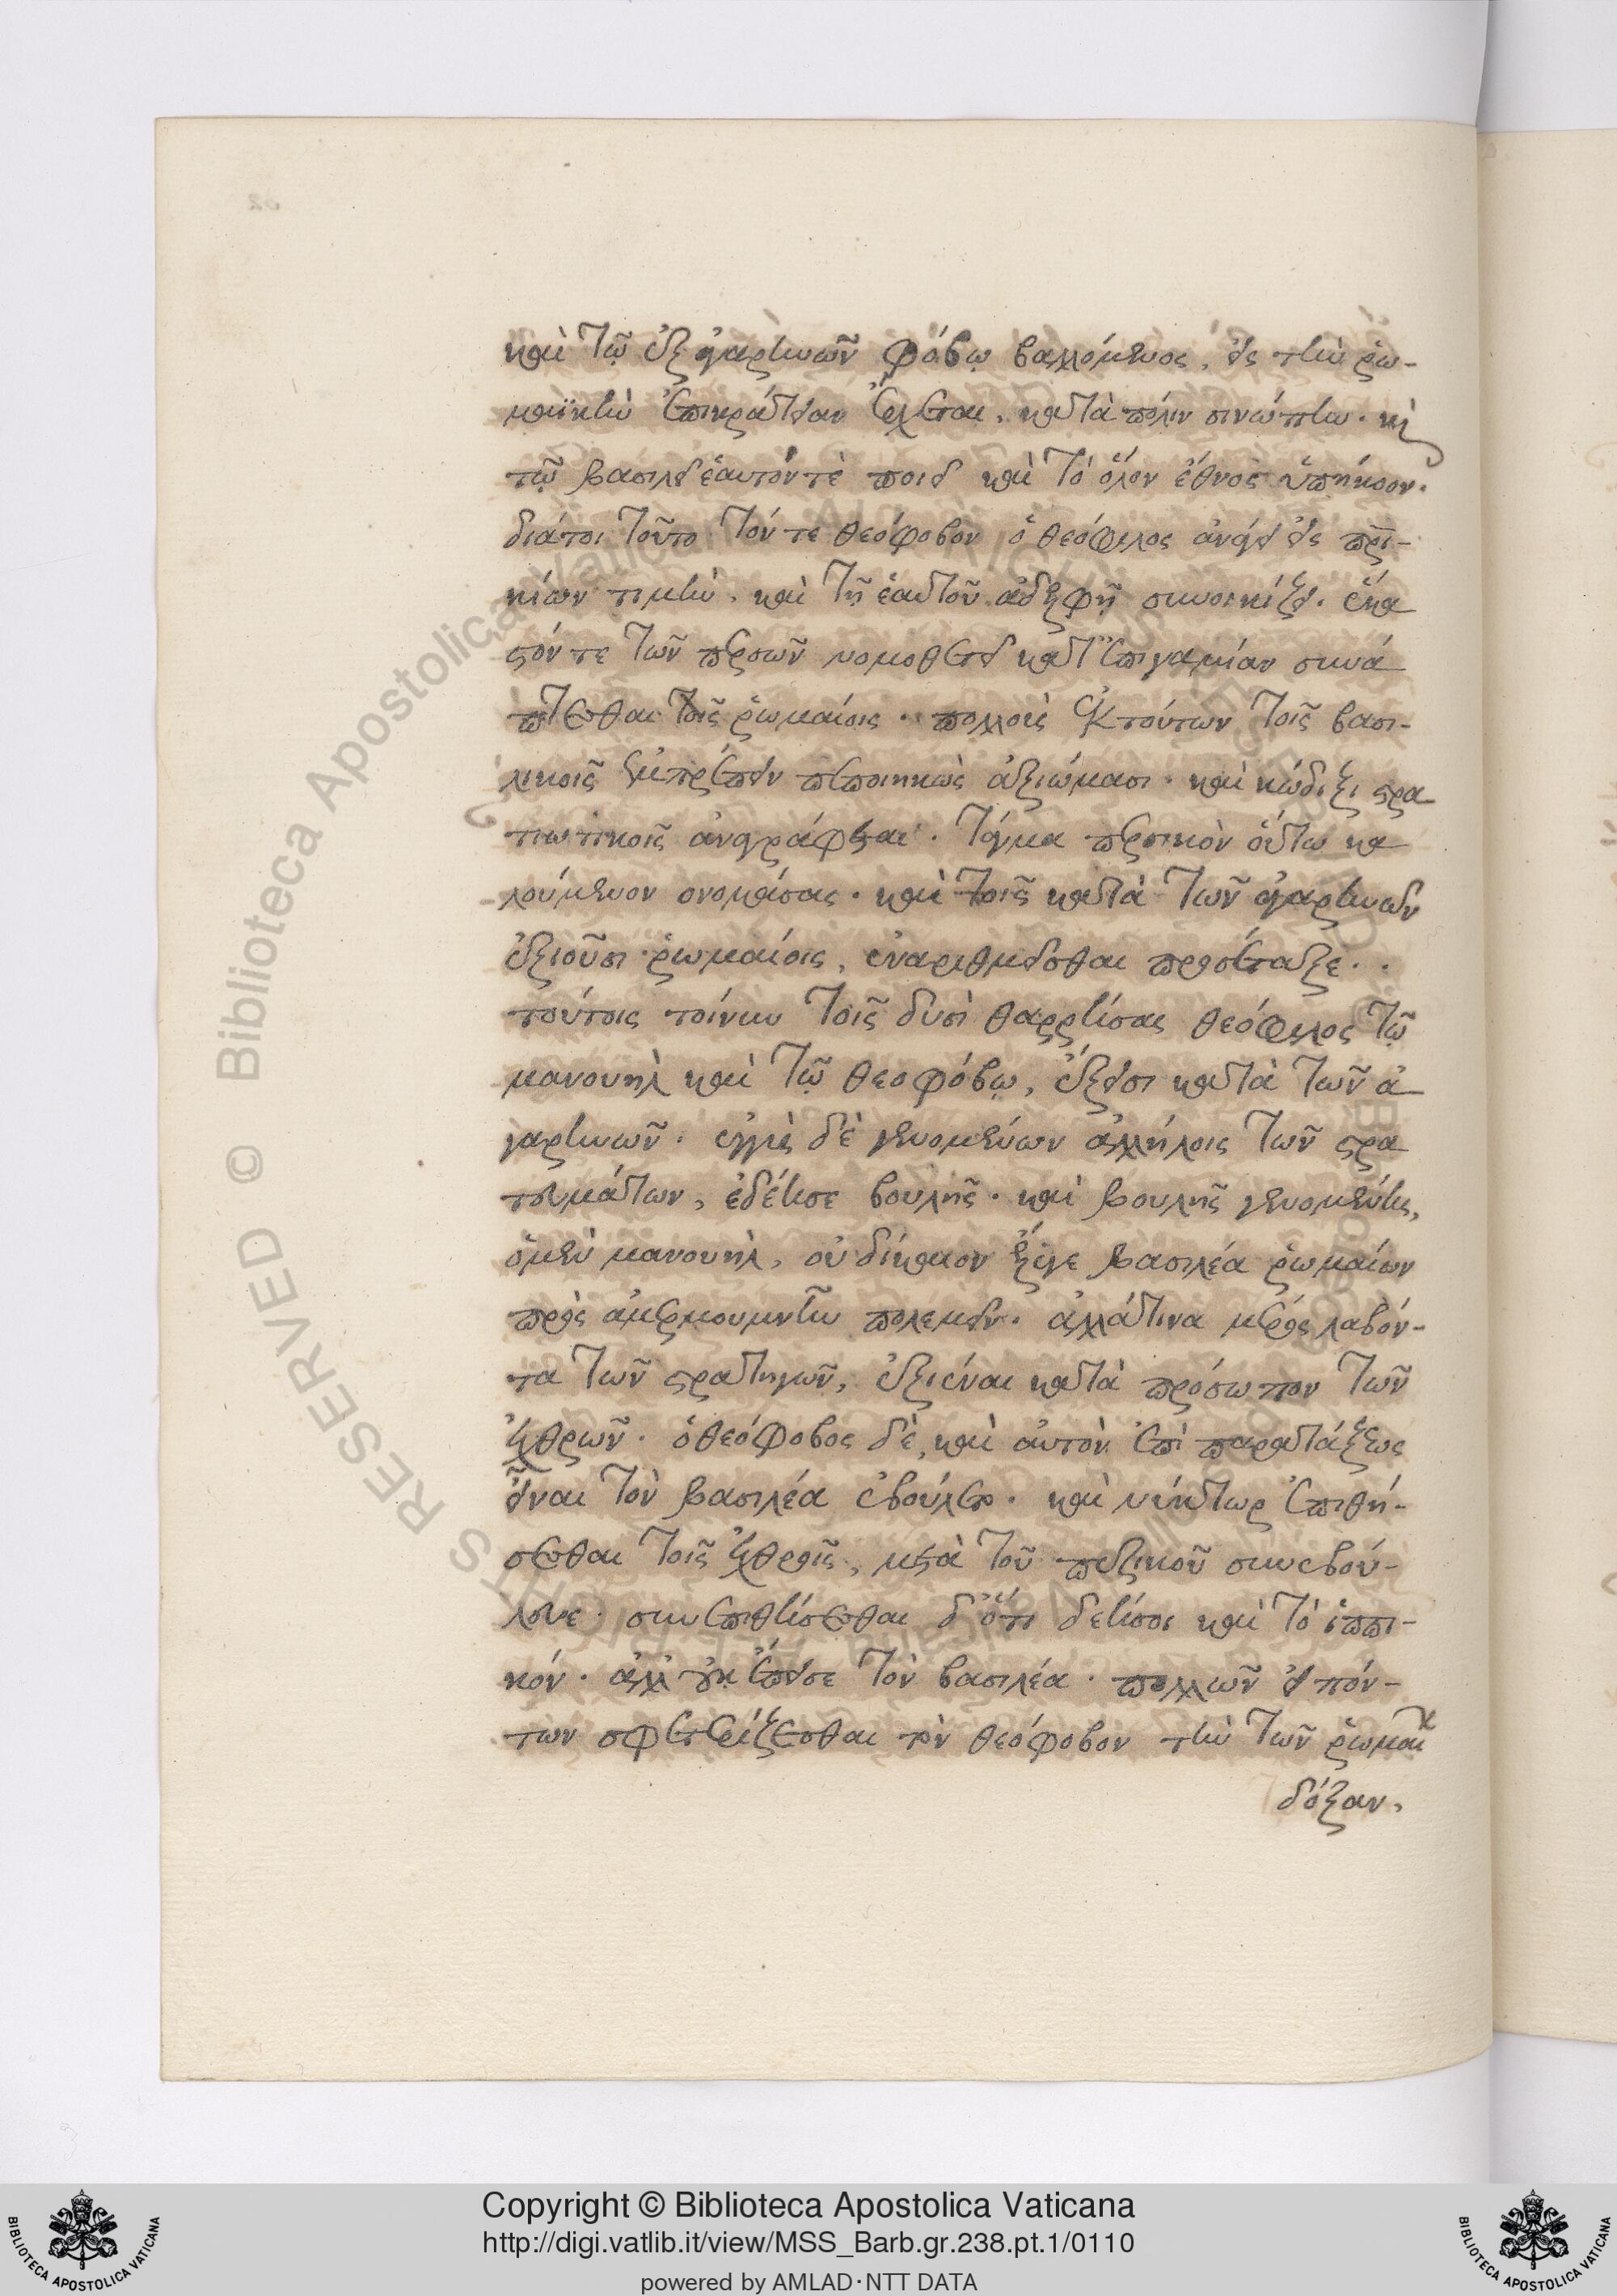 καὶ τῷ ἐξ ἀγαρηνῶν φόβῳ βαλλόμενος, εἰς τὴν ῥω-
μαϊκὴν ἐπικράτειαν ἔρχεται, κατὰ πόλιν σινώπην. καὶ
τῷ βασιλεῖ ἑαυτόν τὲ ποιεῖ καὶ τὸ ὅλον ἔθνος ὑπήκοον.
διάτοι τοῦτο τόν τε θεόφοβον ὁ θεόφιλος ἀνάγει εἰς πατρι-
κίων τιμὴν. καὶ τῇ ἑαυτοῦ ἀδελφῇ συνοικίζει. ἕκα
στόν τε τῶν περσῶν νομοθετεῖ κατ' ἐπιγαμίαν συνά
πτεσθαι τοῖς ῥωμαίοις. πολλοὺς ἐκ τούτων τοῖς βασι-
λικοῖς ἐμπρέπειν πεποιηκὼς ἀξιώμασι. καὶ κώδιξι στρα
τιωτικοῖς ἀναγράφεται. τάγμα περσικὸν οὕτω κα
λούμενον ὀνομάσας. καὶ τοῖς κατὰ τῶν ἀγαρηνῶν
ἐξιοῦσι ῥωμαίοις, ἐναριθμεῖσθαι προσέταξε..
τούτοις τοίνυν τοῖς δυσὶ θαρρήσας θεόφιλος τῷ
μανουὴλ καὶ τῷ θεοφόβῳ, ἔξεισι κατὰ τῶν ἀ
γαρηνῶν. ἐγγὺς δὲ γενομένων ἀλλήλοις τῶν στρα
τευμάτων, ἐδέησε βουλῆς. καὶ βουλῆς γενομένης,
ὁμὲν μανουὴλ, οὐ δίκαιον ἔλεγε βασιλέα ῥωμαίων
πρὸς ἀμερμουμνὴν πολεμεῖν. ἀλλάτινα μέρος λαβόν-
τα τῶν στρατηγῶν, ἐξιέναι κατὰ πρόσωπον τῶν
ἐχθρῶν. ὁ θεόφοβος δὲ, καὶ αὐτὸν ἐπὶ παρατάξεως
εἶναι τὸν βασιλέα ἐβούλετο. καὶ νύκτωρ ἐπιθή-
σεσθαι τοῖς ἐχθροῖς, μετὰ τοῦ πεζικοῦ συνεβού-
λευε. συνεπιθήσεσθαι δ' ὅτι δεήσοι καὶ τὸ ἱππι-
κόν. ἀλλ' οὐκ ἔπεισε τὸν βασιλέα. πολλῶν εἰπόν-
των σφετερίζεσθαι τὸν θεόφοβον τὴν τῶν ῥωμαί
δόξαν,
Copyright © Biblioteca Apostolica Vaticana
http://digi.vatlib.it/view/MSS_Barb.gr.238.pt.1/0110
powered by AMLAD·NTT DATA